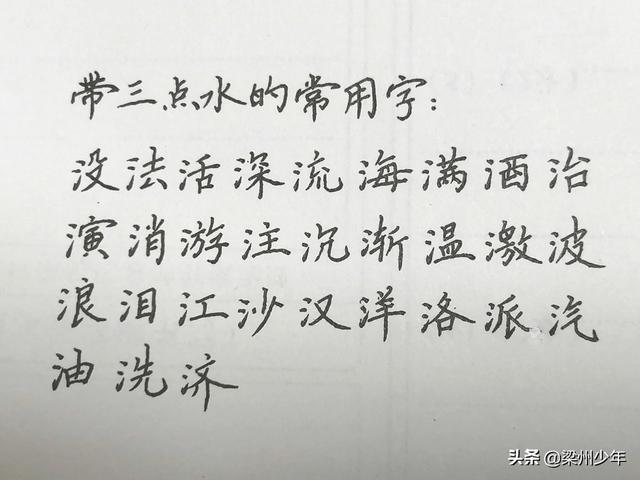 带三点水的常用字：
没法活深流海满酒治
演消游注沉渐温激波
浪泪江沙汉洋洛派汽
油洗济
头条@梁州少年